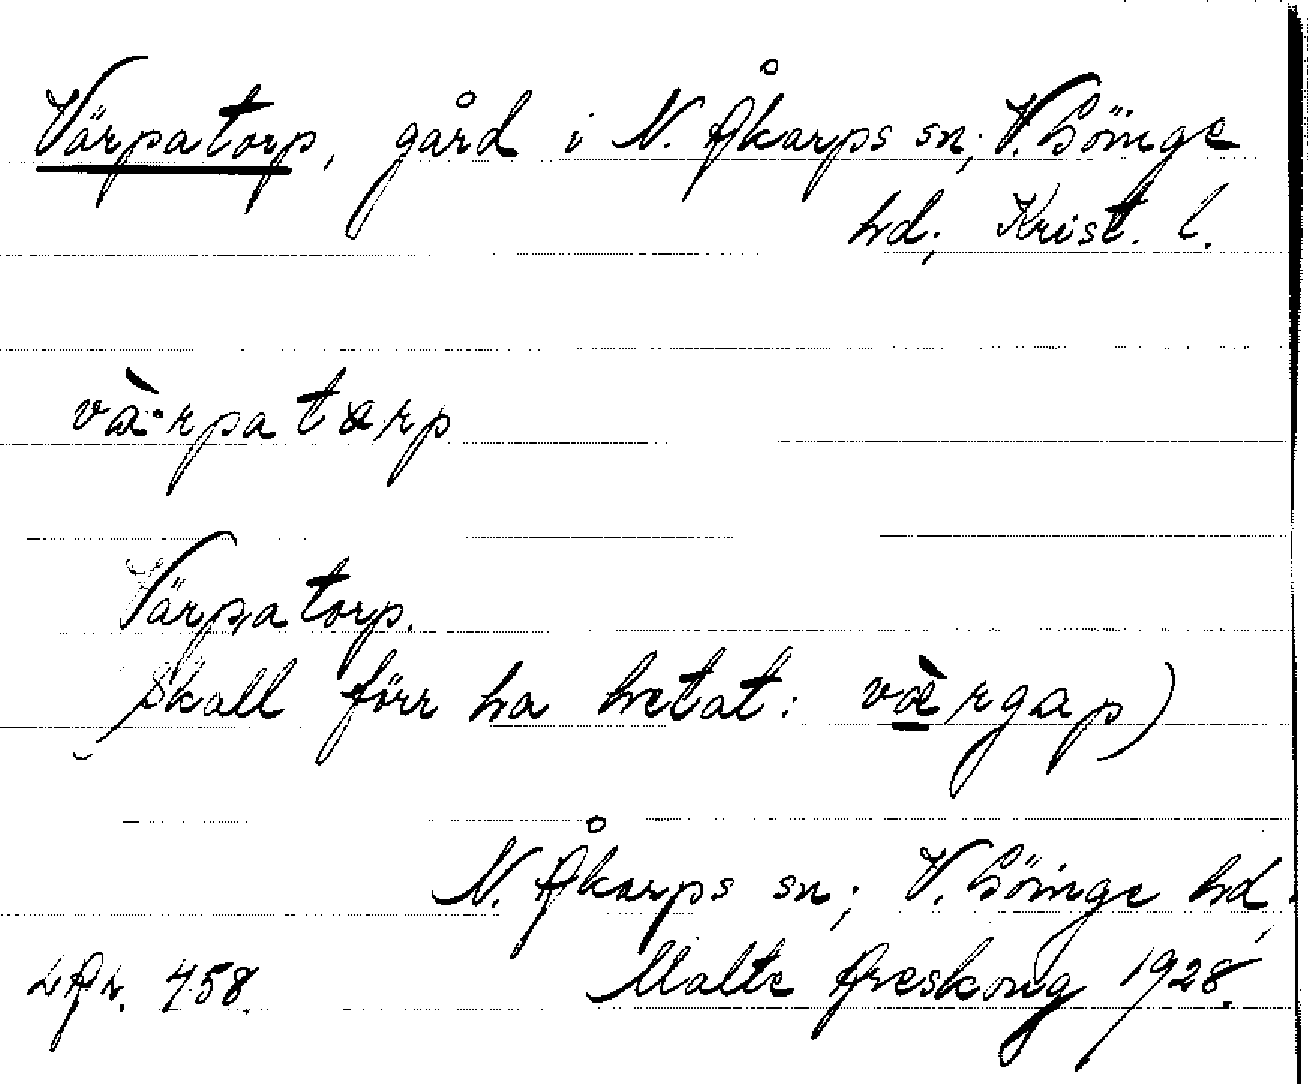 Värpatorp, gård i N. Åkarps sn; V. Göinge
hd; Krist. l.
và·rpatærp
Värpatorp.
(Skall förr ha hetat: værgap)
N. Åkarps sn; V. Göinge hd.
Malte Areskoug 1928.
LAL. 458.